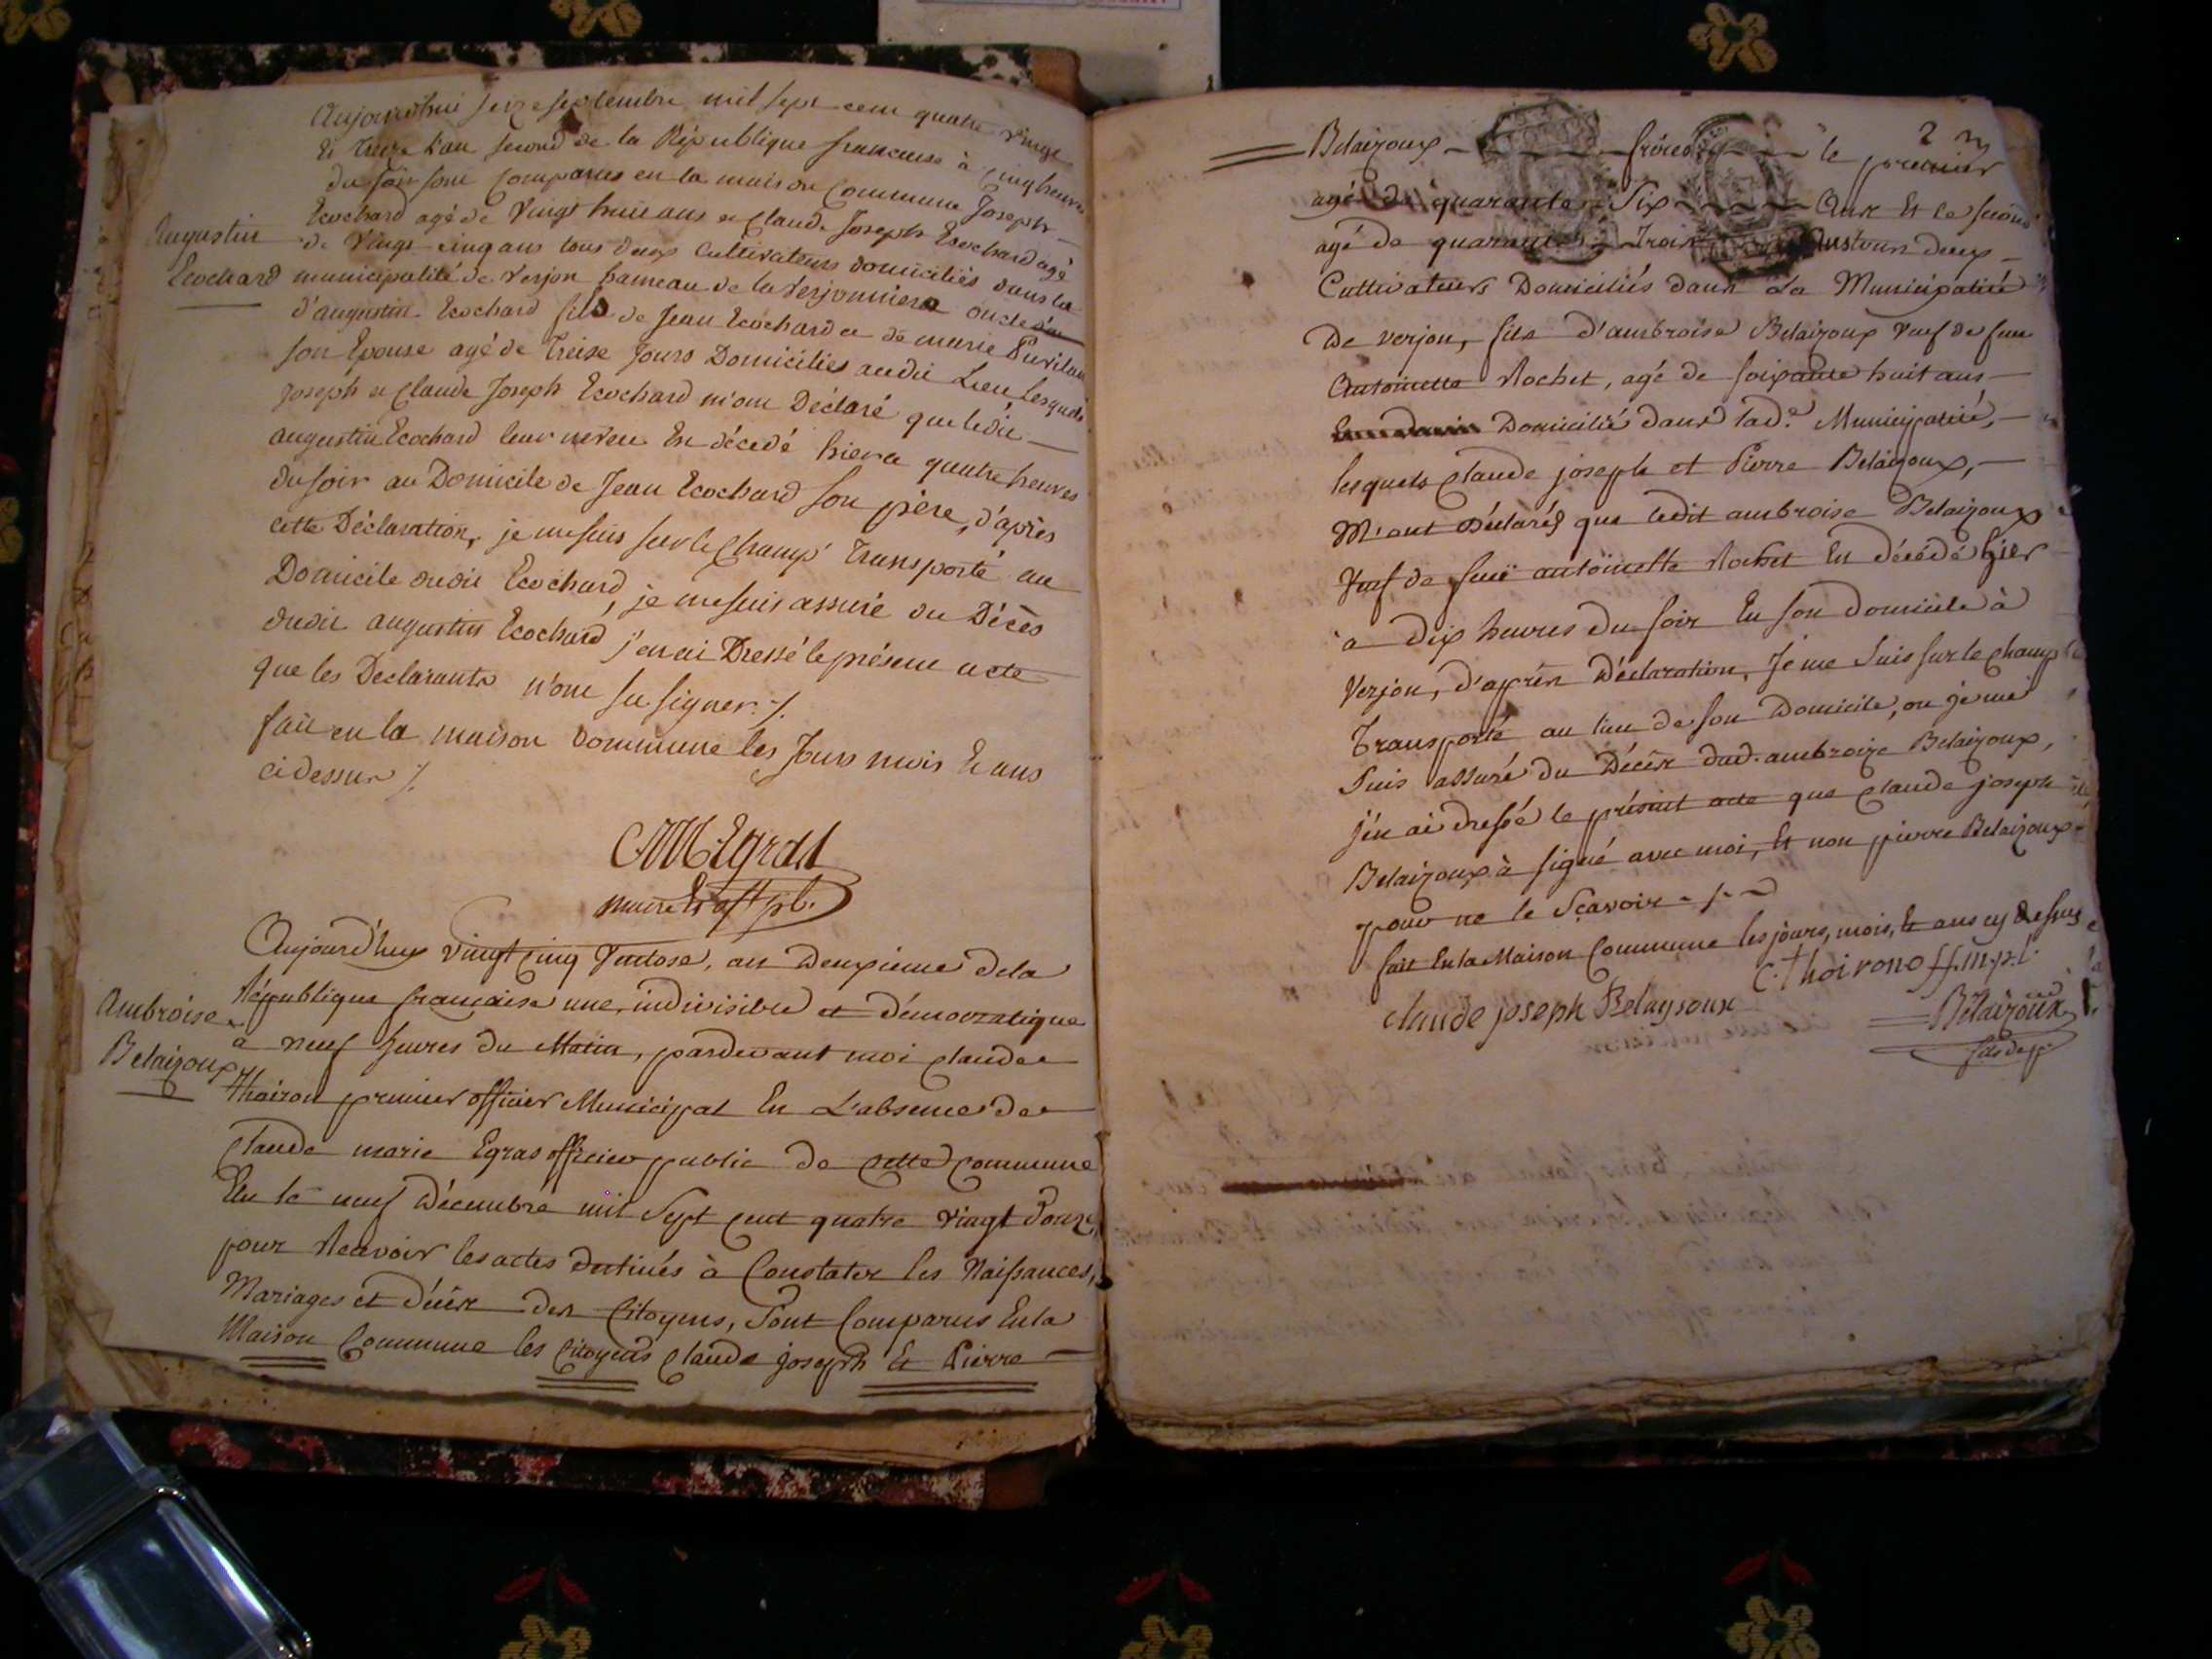 Aujourdhui seize septembre mil sept cent quatre vingt
Et treize l'an second de la République francaise à cinq heures
du soir sont comparus en la maison commune Joseph
Ecochard agé de vingt huit ans et Claude Joseph Ecochard agé
de vingt cinq ans tous deux cultivateurs domiciliés dans la
Augustin
Ecochard
municipalité de verjon hameau de la verjonniere oncle
d'augustin Ecochard fils de Jean Ecochard et de marie
son Epouse agé de treise Jours Domiciliés audit Lieu lesquels
Joseph et Claude Joseph Ecochard m'ont Déclaré que ledit
augustin Ecochard leur neveu Est décedé hier a quatre heures
du soir au Domicile de Jean Ecochard son père, d'après
cette Déclaration, je me suis sur le champ transporté au
Domicile dudit Ecochard, je me suis assuré du Décès
dudit augustin Ecochard j'en ai Dressé le présent acte
que les Declarants n'ont su signer ./.
fait en la maison commune les Jours mois Et ans
ci dessus ./.
CMEgrat
maire Et off pb.
Aujourd'huy vingt cinq Ventose, an deuxieme de la
République française une, indivisible et démocratique
Ambroise
Belaizoux
à neuf heures du Matin, pardevant moi claude
thoiron premier officier Municipal En L'absence de
Claude marie Egras officier public de cette commune
Elu le neuf Décembre mil Sept cent quatre vingt Douze,
pour Recevoir les actes destinés à Constater les Naissances,
Mariages et Décès des Citoyens, Sont Comparus En la
Maison Commune les Citoyens Claude joseph Et Pierre
2
Belaizoux frères le premier
agé de quarante Six Ans Et le second
agé de quarante trois Ans tous deux
Cultivateurs Domiciliés dans la Municipalité
De verjon, fils d'ambroise Belaizoux veuf de feue
Antoinette Rochet, agé de soixante huit ans
Domicilié dans lad.e Municipalité,
lesquels Claude joseph et Pierre Belaizoux,
M'ont déclarés que ledit ambroise Belaizoux
Veuf de feuë antoinette Rochet Est décédé hier
a dix heures du soir En son domicile à
Verjon, d'après Déclaration, Je me Suis sur le champ
Transporté au lieu de son Domicile, ou je me
Suis assuré du Décès dud. ambroize Belaizoux,
j'en ai dressé le présent acte que Claude joseph
Belaizoux à signé avec moi, Et non pierre Belaizoux
pour ne le Sçavoir ./.
fait En la Maison Commune les jours, mois, Et ans cy dessus
C. thoiron off. mpl.
claude joseph Belaysoux
Belaizoux